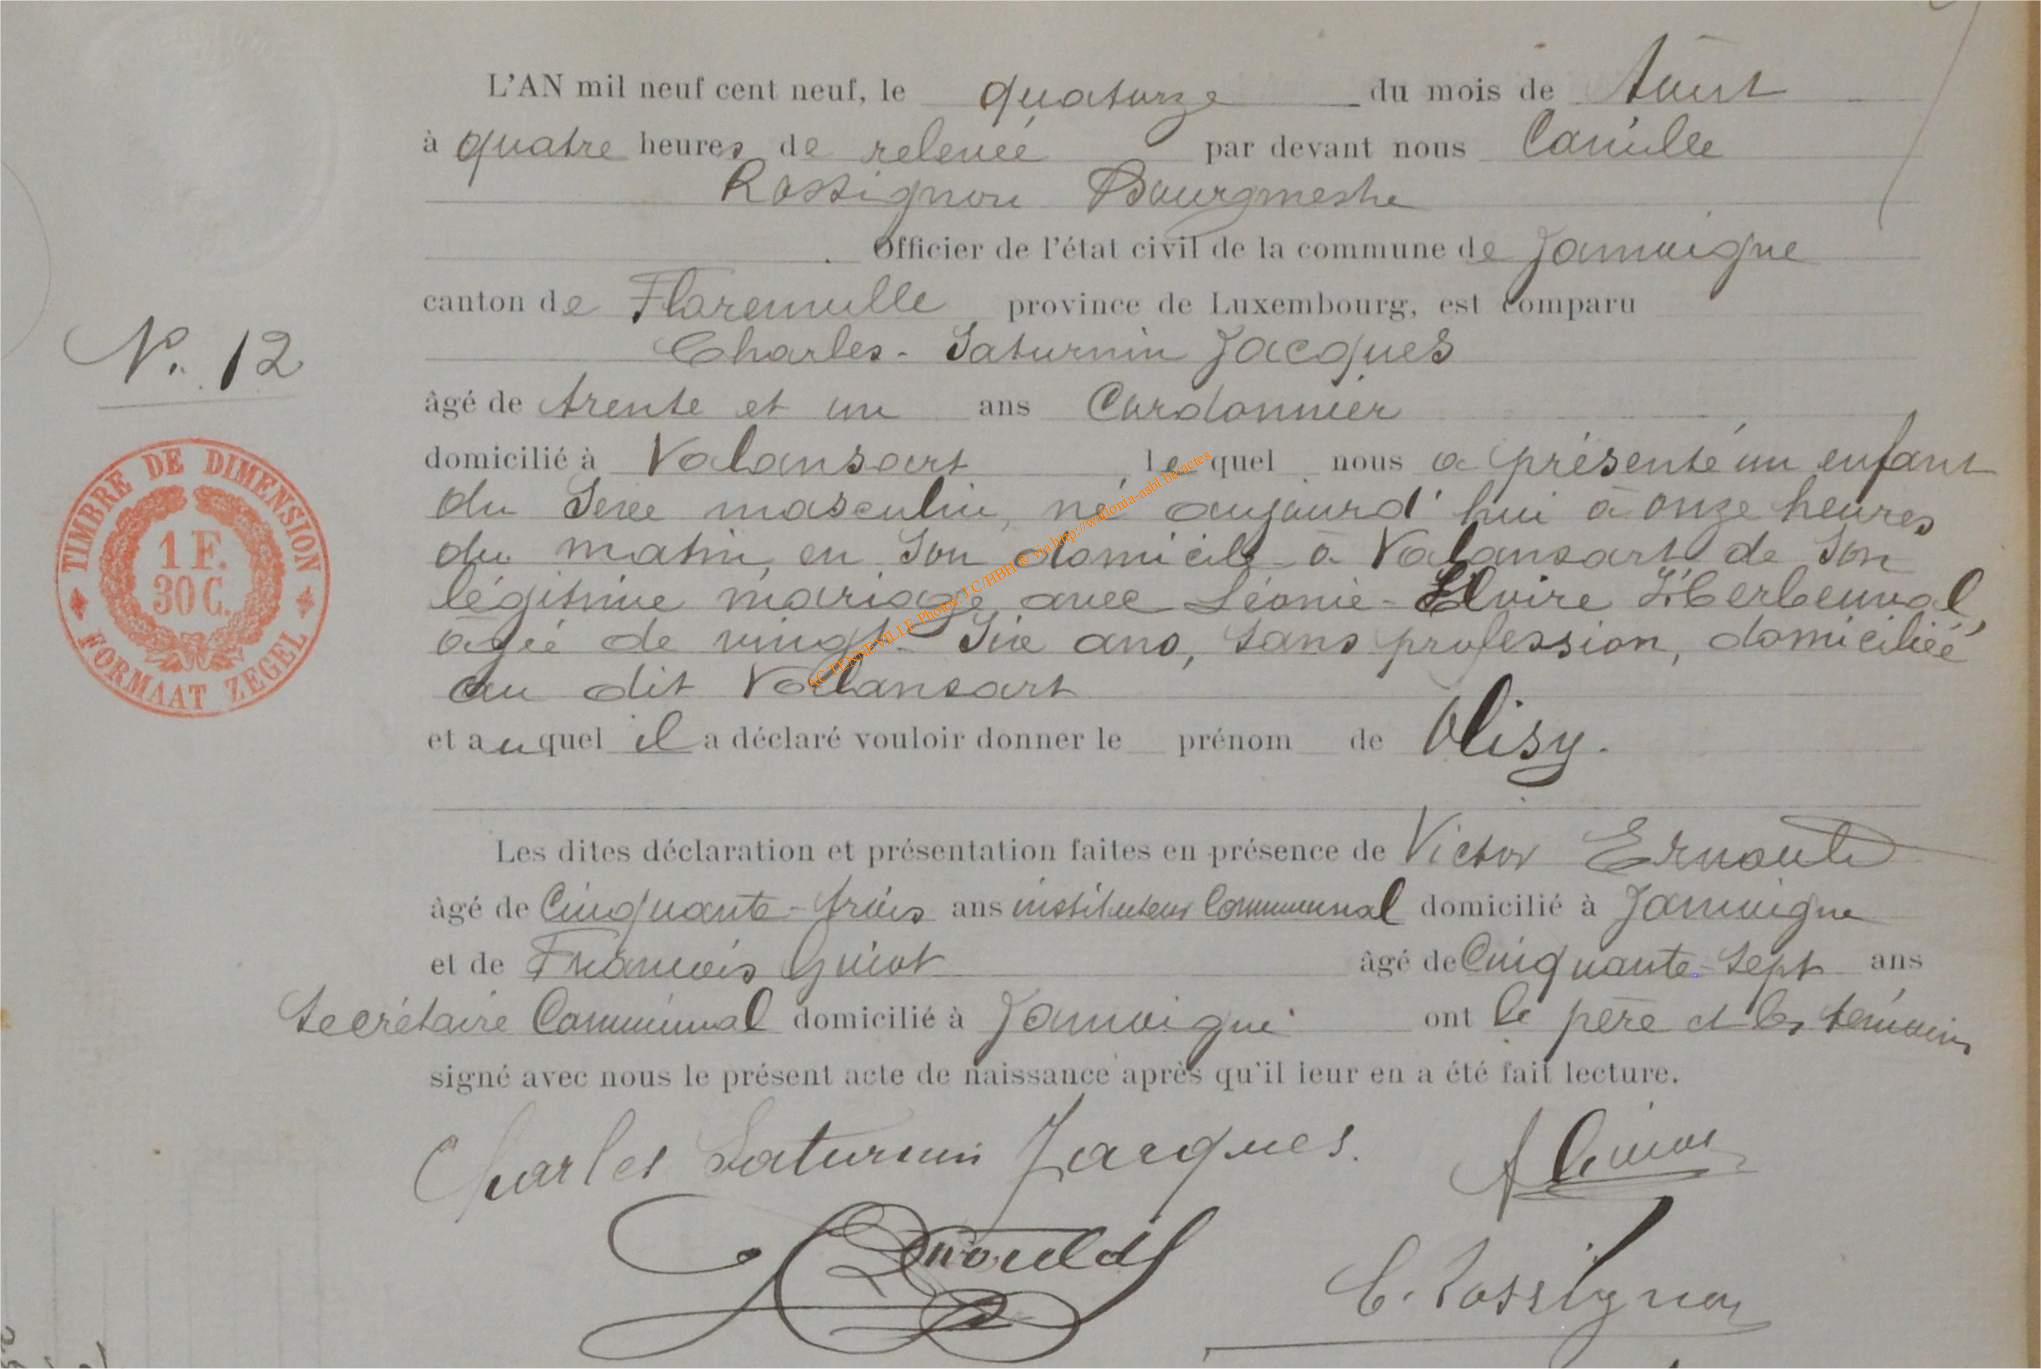 L'AN mil neuf cent neuf, le quatorze du mois de Août
à quatre heures de relevée par devant nous Camille
Rossignon Bourgmestre
Officier de l'état civil de la commune de Jamoigne
canton de Florenville province de Luxembourg, est comparu
Charles-Saturnin Jacques
N°. 12
âgé de trente et un ans Cordonnier
domicilié à Valansart lequel nous a présenté un enfant
du Sexe masculin, né aujourd'hui à onze heures
du matin, en son domicile à Valansart de son
légitime mariage avec Léonie-Elvire L'Herbeuval,
âgée de vingt-six ans, sans profession, domiciliée
au dit Valansart
et auquel il a déclaré vouloir donner le prénom de Olisy.
TIMBRE DE DIMENSION
1 F.
30 C.
FORMAAT ZEGEL
Les dites déclaration et présentation faites en présence de Victor
âgé de Cinquante-trois ans instituteur Communal domicilié à Jamoigne
et de François Guiot âgé de Cinquante-sept ans
Secrétaire Communal domicilié à Jamoigne ont le père et les témoins
signé avec nous le présent acte de naissance après qu'il leur en a été fait lecture.
Charles Saturnin Jacques.
C. Rossignon